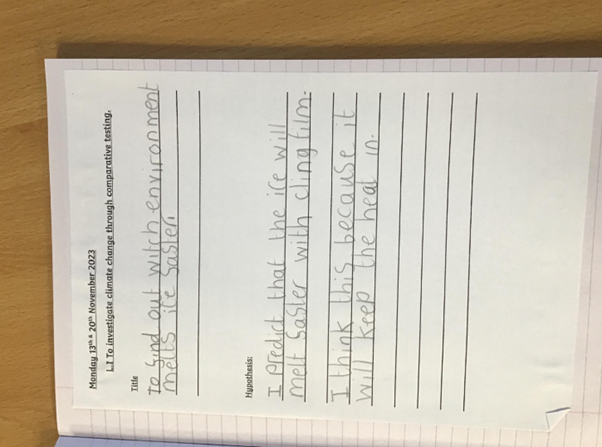 Monday 13th & 20th November 2023
L.I To investigate climate change through comparative testing.
Title
to find out witch environment
melts ice faster.
Hypothesis:
I predict that the ice will
melt faster with cling film.
I think this because it
will keep the heat in.